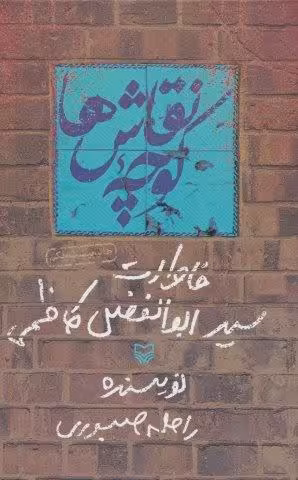 کوچه
نقاش‌ها
خاطرات
سید ابوالفضل کاظمی
نویسنده
راحله صبوری